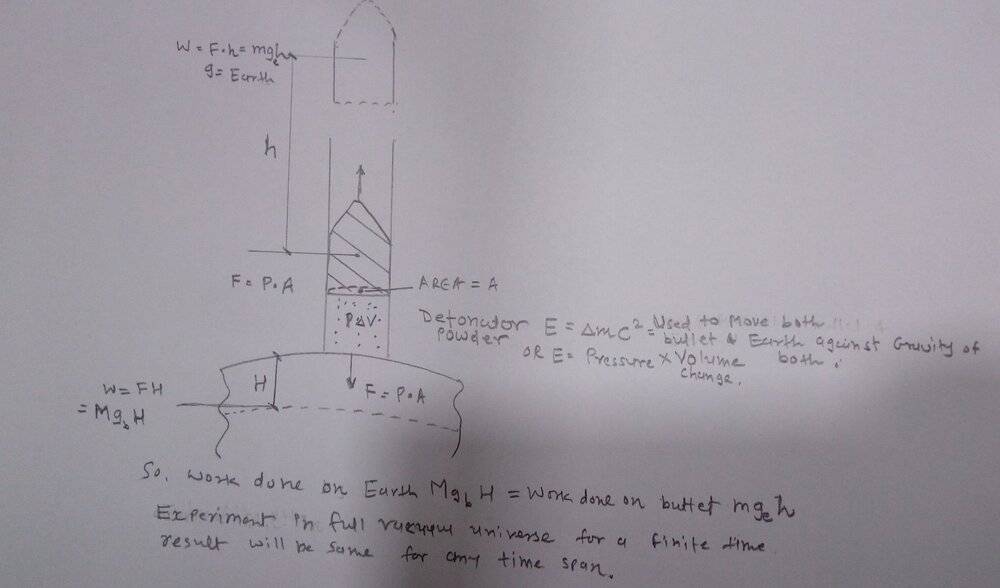 W = F·h = mgₑh
g = Earth
h
F = P·A
AREA = A
PΔV
Detonator
Powder
E = Δmc² = Used to Move both
bullet & Earth against Gravity of
OR E = Pressure × Volume both.
change.
H
F = P·A
W = FH
= Mg_bH
So, work done on Earth Mg_bH = Work done on bullet mgₑh
Experiment in full vacuum universe for a finite time
result will be same for any time span.